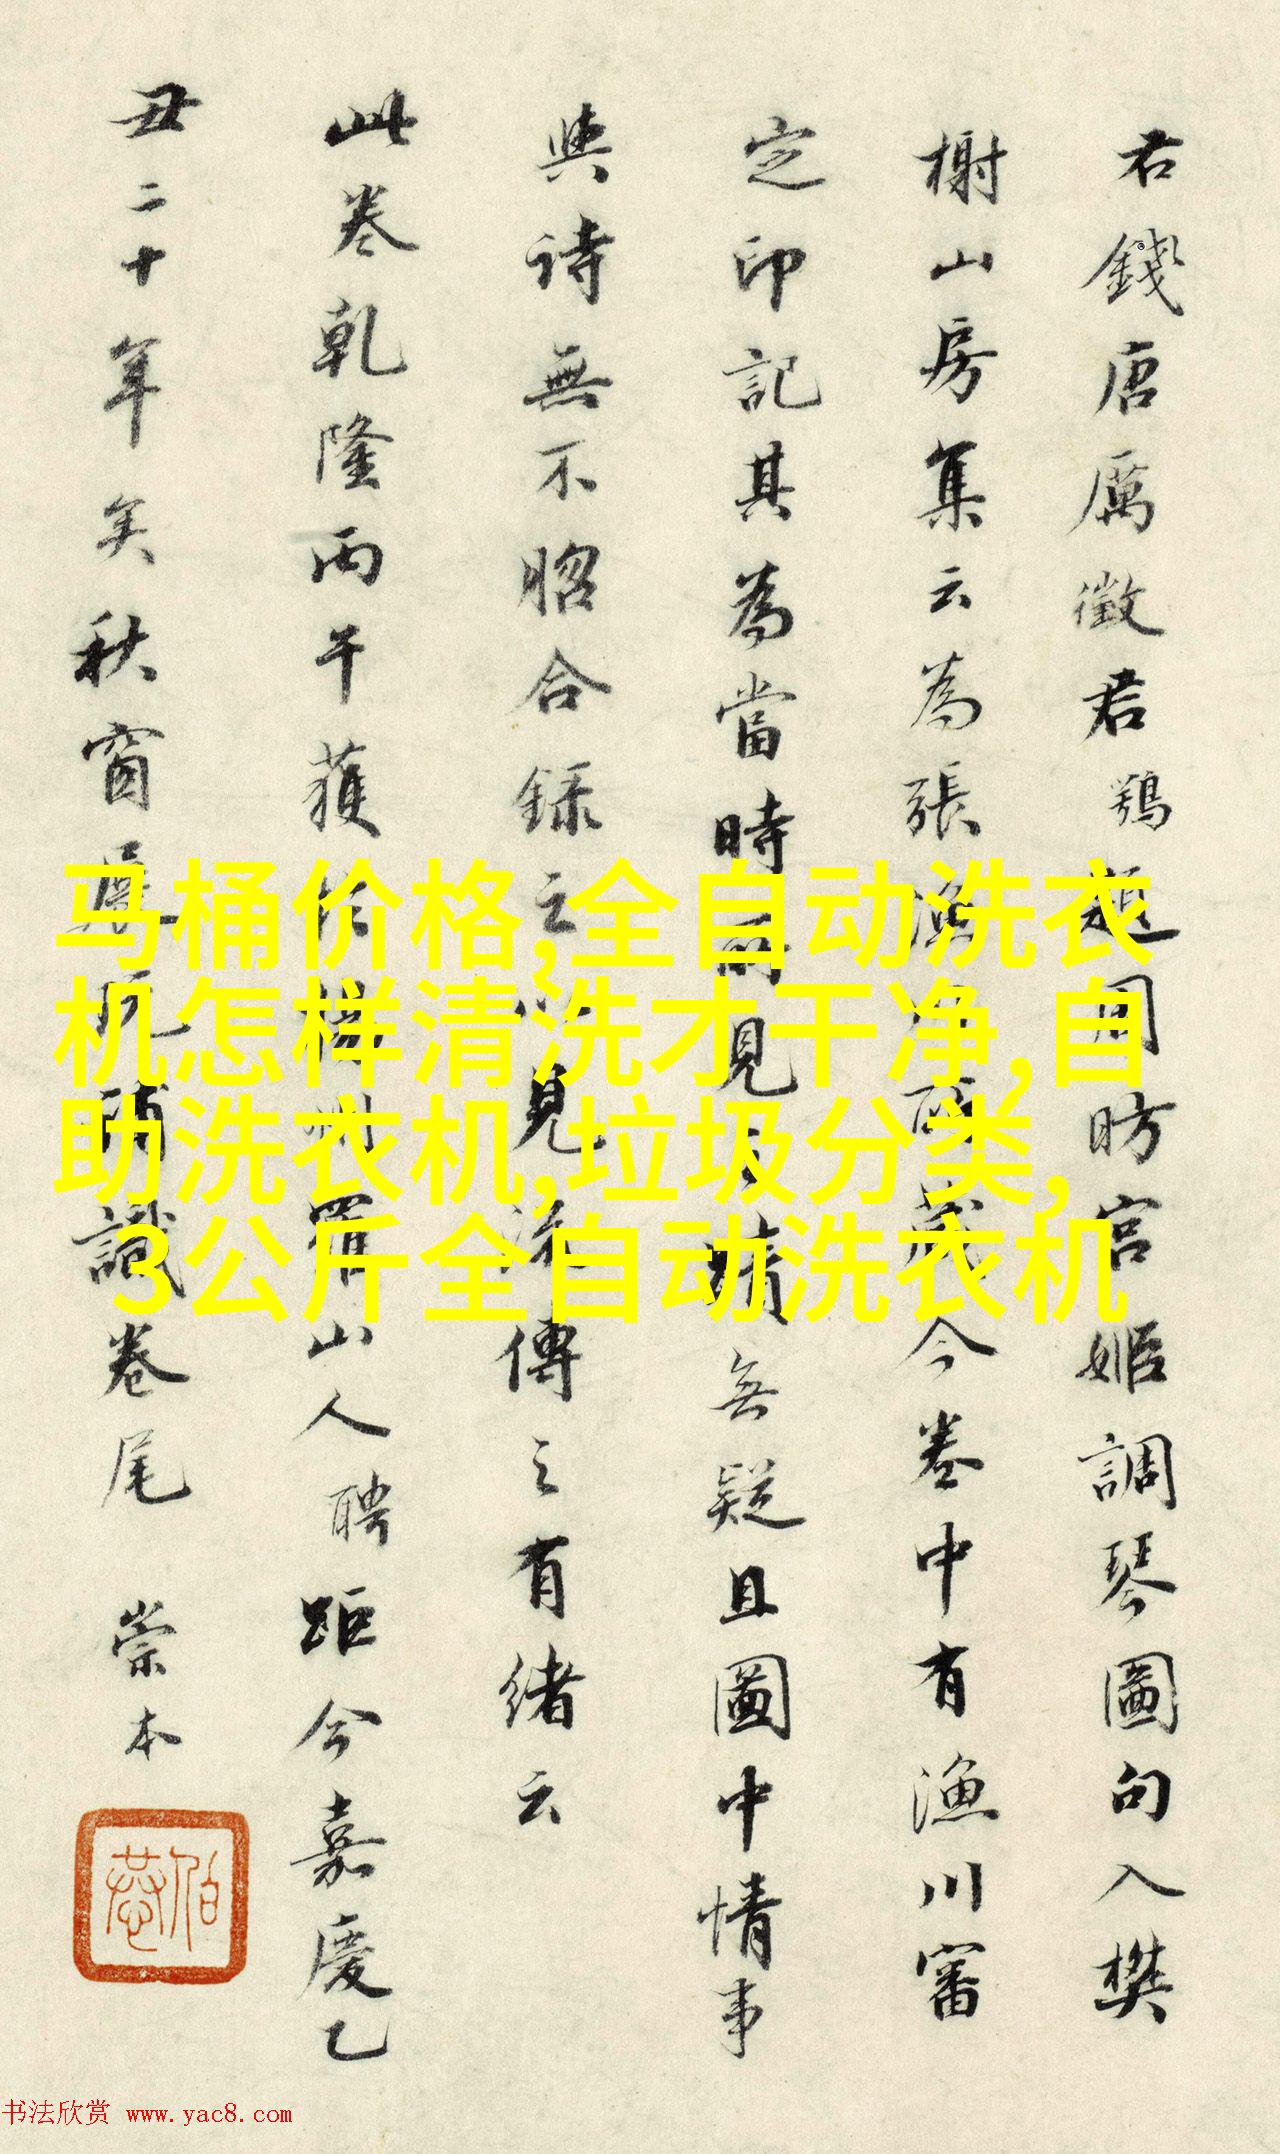 君錢唐厲徵君鶚題周昉宮姬調琴圖句入樊
榭山房集云為張漁川所藏今卷中有漁川審
定印記其為當時所見之蹟無疑且圖中情事
與詩無不昭合録之以見流傳之有緒云
此卷乾隆丙午獲於揚州羅山人聘距今嘉慶乙
丑二十年矣秋窗展玩補識卷尾 崇本
马桶价格,全自动洗衣
机怎样清洗才干净,自
助洗衣机,垃圾分类,
3公斤全自动洗衣机
书法欣赏 www.yac8.com